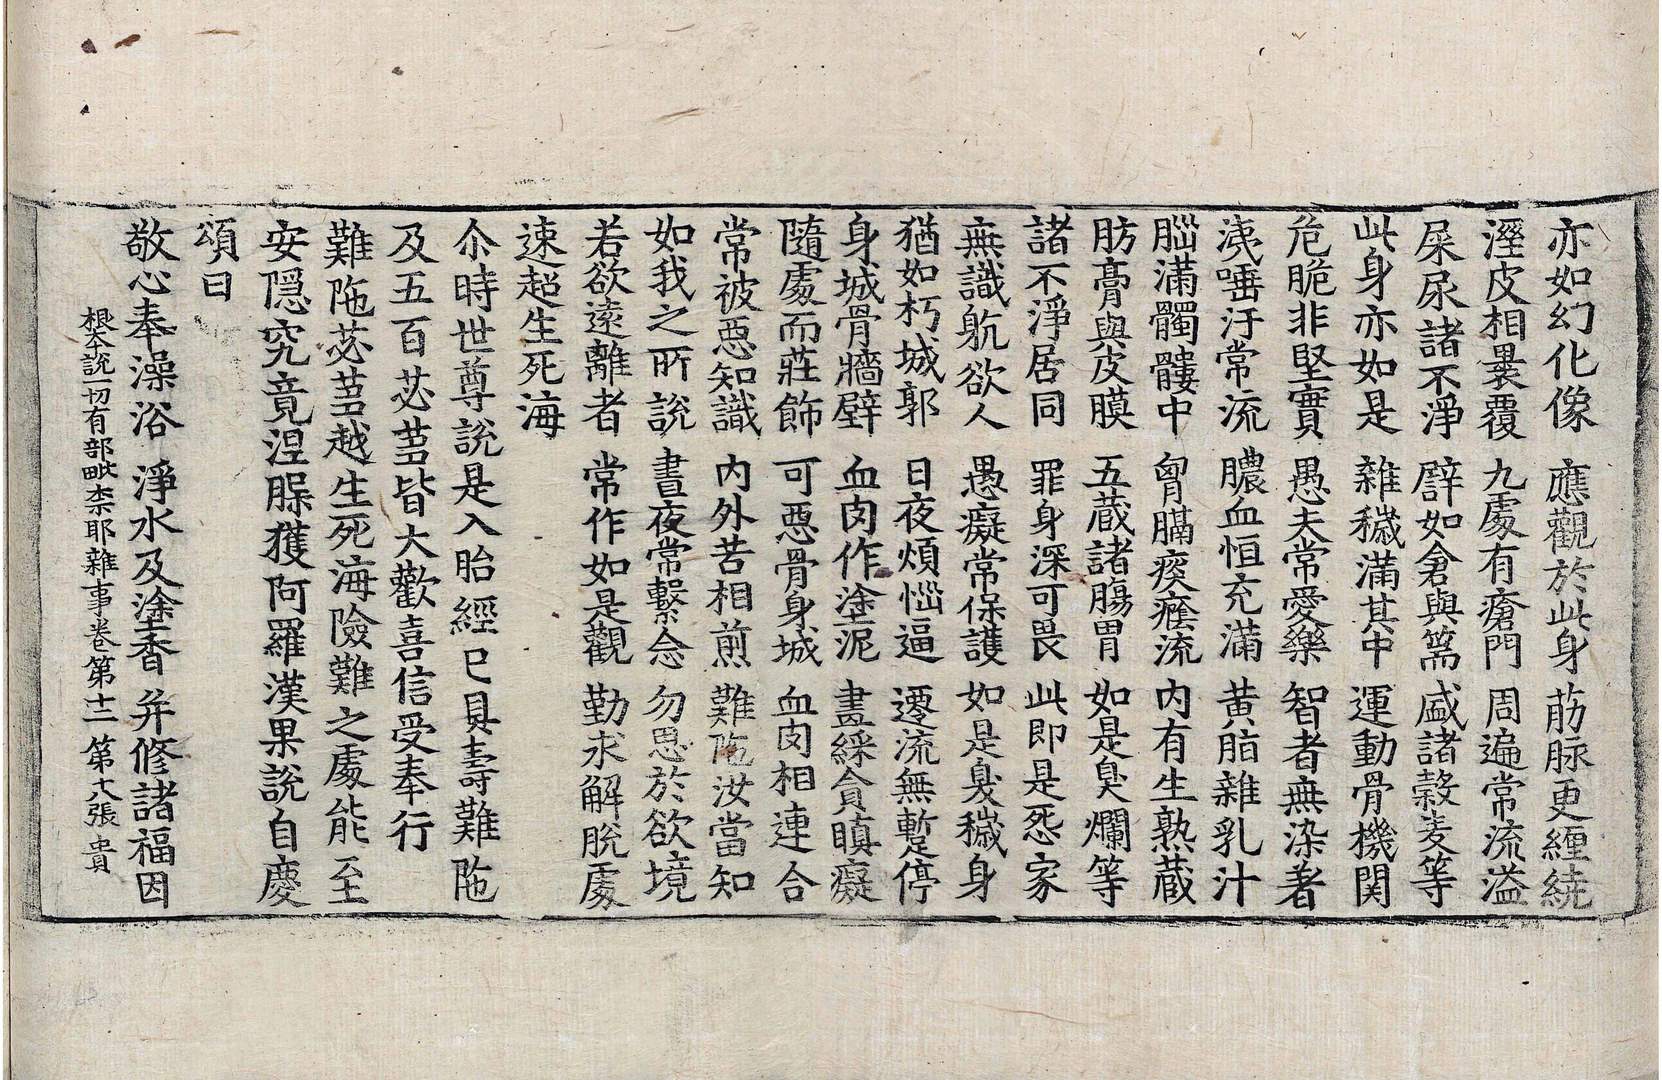 亦如幻化像　應觀於此身　筋脉更纏繞
溼皮相裹覆　九處有瘡門　周遍常流溢
屎尿諸不淨　譬如倉與篅　盛諸穀麦等
此身亦如是　雜穢滿其中　運動骨機関
危脆非堅實　愚夫常愛樂　智者無染著
洟唾汙常流　膿血恒充滿　黄脂雜乳汁
腦滿髑髏中　胷膈痰癊流　内有生熟蔵
肪膏與皮膜　五蔵諸腸胃　如是臭爛等
諸不淨居同　罪身深可畏　此即是怨家
無識躭欲人　愚癡常保護　如是臭穢身
猶如朽城郭　日夜煩惱逼　遷流無暫停
身城骨牆壁　血肉作塗泥　畫綵貪瞋癡
隨處而莊飾　可惡骨身城　血肉相連合
常被惡知識　内外苦相煎　難陁汝當知
如我之所說　晝夜常繫念　勿思於欲境
若欲遠離者　常作如是觀　勤求解脫處
速超生死海
尒時世尊說是入胎經已具壽難陁
及五百苾芻皆大歡喜信受奉行
難陁苾芻越生死海險難之處能至
安隱究竟涅槃獲阿羅漢果說自慶
頌曰
敬心奉澡浴　淨水及塗香　并修諸福因
根本說一切有部毗柰耶雜事卷第十二　第十八張　貴